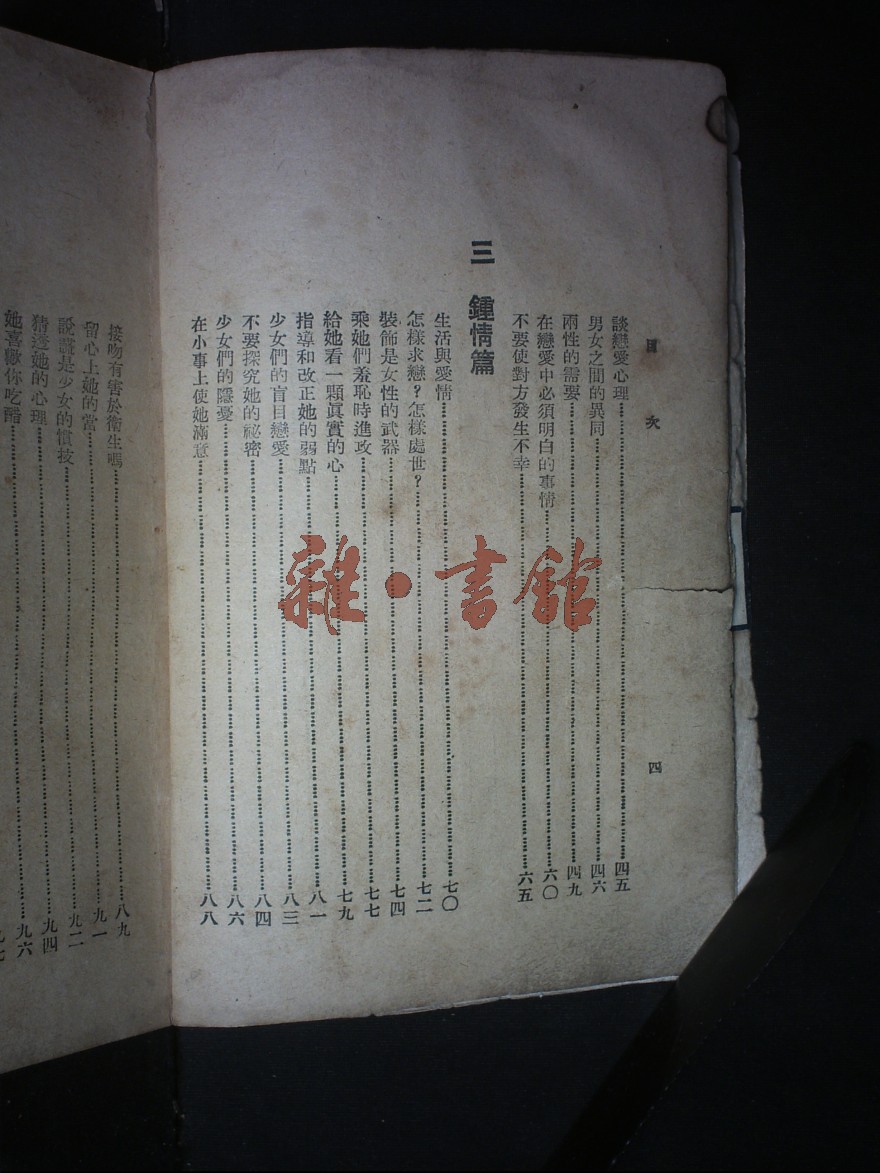 目次
四
談戀愛心理……四五
男女之間的異同……四六
兩性的需要……四九
在戀愛中必須明白的事情……六〇
不要使對方發生不幸……六五
三 鍾情篇
生活與愛情……七〇
怎樣求戀？怎樣處世？……七二
裝飾是女性的武器……七四
乘她們羞恥時進攻……七七
給她看一顆眞實的心……七九
指導和改正她的弱點……八一
少女們的盲目戀愛……八三
不要探究她的祕密……八四
少女們的隱憂……八六
在小事上使她滿意……八八
接吻有害於衞生嗎……八九
留心上她的當……九一
說謊是少女的慣技……九二
猜透她的心理……九四
她喜歡你吃醋……九六
雜·書館